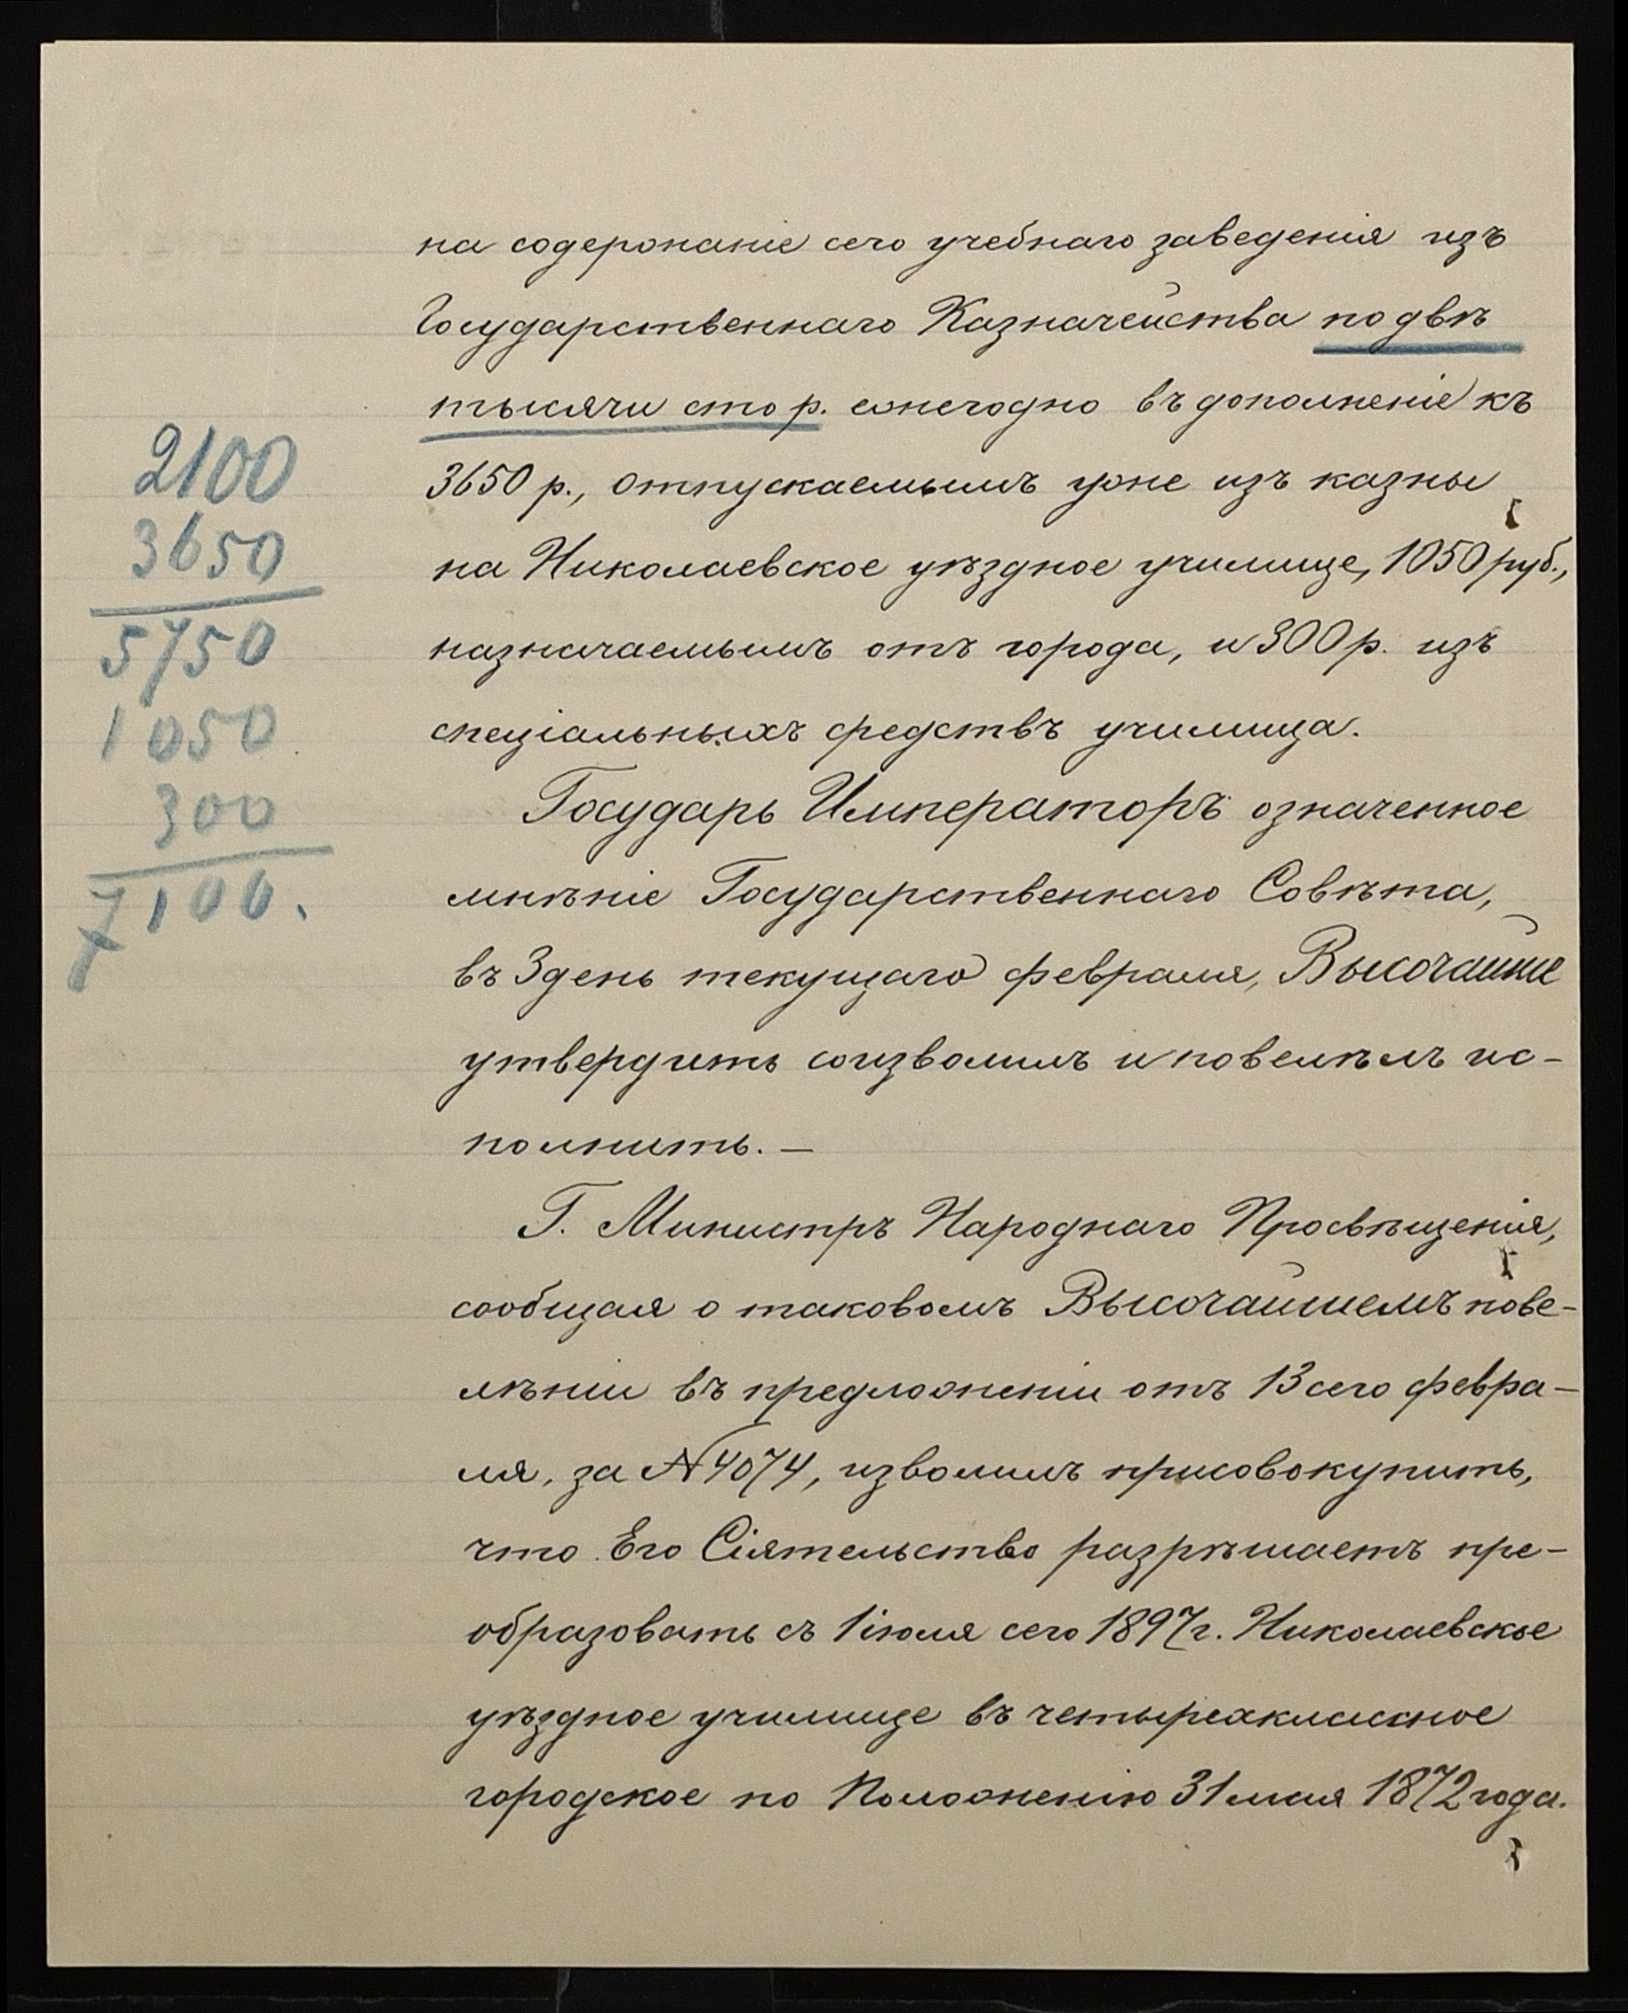 на содержаніе сего учебнаго заведенія изъ
Государственнаго Казначейства по двѣ
тысячи сто р. ежегодно въ дополненіе къ
3650 р., отпускаемымъ уже изъ казны
на Николаевское уѣздное училище, 1050 руб.,
назначаемымъ отъ города, и 300 р. изъ
спеціальныхъ средствъ училища.
2100
3650
5750
1050
300
7100.
Государь Императоръ означенное
мнѣніе Государственнаго Совѣта,
въ 3 день текущаго февраля, Высочайше
утвердить соизволилъ и повелѣлъ ис-
полнить. —
Г. Министръ Народнаго Просвѣщенія,
сообщая о таковомъ Высочайшемъ пове-
лѣніи въ предложеніи отъ 13 сего февра-
ля, за № 4074, изволилъ присовокупить,
что Его Сіятельство разрѣшаетъ пре-
образовать съ 1 іюля сего 1897 г. Николаевское
уѣздное училище въ четырехклассное
городское по Положенію 31 мая 1872 года.